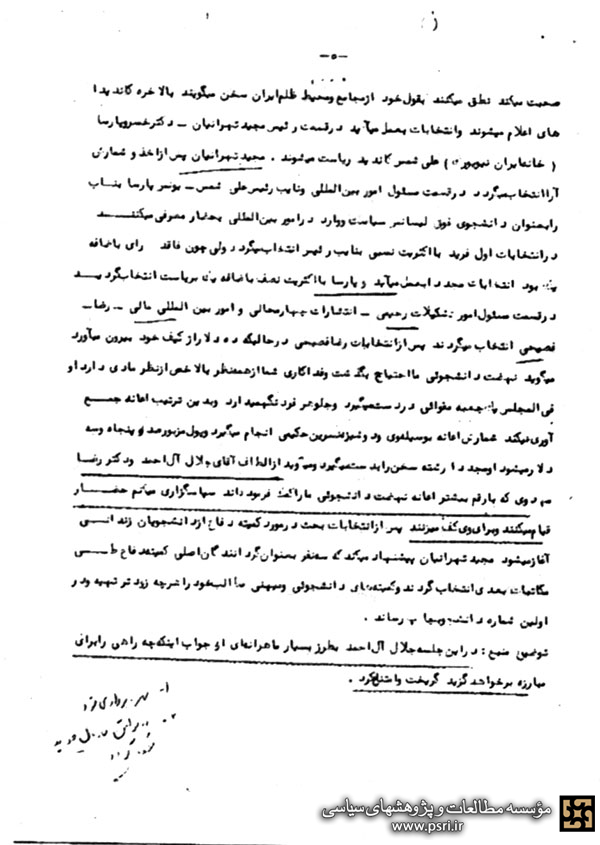 -۵-
صحبت میکند نطق میکنند بقول خود از مجامع ومحیط ظلم ایران سخن میگویند بالاخره کاندیدا
های اعلام میشوند وانتخابات بعمل میآید در قسمت رئیس مجید تهرانیان - دکتر خسرو پارسا
( خانه ایران نیویورک ) علی شمس کاندید ریاست میشوند . مجید تهرانیان پس از اخذ و شمارش
آرا انتخاب میگردد در قسمت مسئول امور بین المللی ونایب رئیس علی شمس - پارسا
رابعنوان دانشجوی فوق لیسانس سیاست ووارد در امور بین المللی بحضار معرفی میکنند
در انتخابات اول فرید با اکثریت نسبی بنایب رئیس انتخاب میگردد ولی چون فاقد رای باضافه
یک بود انتخابات مجددا بعمل میآید و پارسا با اکثریت نصف باضافه یک بریاست انتخاب گردید
در قسمت مسئول امور تشکیلات رحیمی - انتشارات چهارمحالی و امور بین المللی مالی - رضا -
فصیحی انتخاب میگردند پس از انتخابات رضا فصیحی در حالیکه ده دلار از کیف خود بیرون میآورد
میگوید نهضت دانشجوئی ما احتیاج بگذشت وفداکاری شما از همه نظر بالاخص از نظر مادی دارد و
فی المجلس جعبه مقوائی در دست میگیرد وجلو هر فرد نگهمیدارد وبدین ترتیب اعانه جمع
آوری میکند شمارش اعانه بوسیله وی ودوشیزه نسرین حکیمی انجام میگیرد وپول مزبور صد و پنجاه وسه
دلار میشود او مجددا رشته سخن را بدست میگیرد ومیگوید از الطاف آقای جلال آل احمد ودکتر رضا
که با رقم بیشتر اعانه نهضت دانشجوئی ما را کمک فرمودند سپاسگزاری میکنم حضار
قیام میکنند وبرای وی کف میزنند پس از انتخابات بحث در مورد کمیته دفاع از دانشجویان زندانی
آغاز میشود مجید تهرانیان پیشنهاد میکند که سه نفر بعنوان گردانندگان اصلی کمیته دفاع طی
مکاتبات بعدی انتخاب گردند وکمیته های دانشجوئی ومیهنی مطالب خود را هرچه زودتر تهیه ودر
اولین شماره دانشجو بچاپ برساند .
توضیح منبع : در این جلسه جلال آل احمد بطرز بسیار ماهرانه ای از جواب اینکه چه راهی را برای
مبارزه برخواهد گزید گریخت وامتناع کرد .
مؤسسه مطالعات و پژوهشهای سیاسی
www.psri.ir